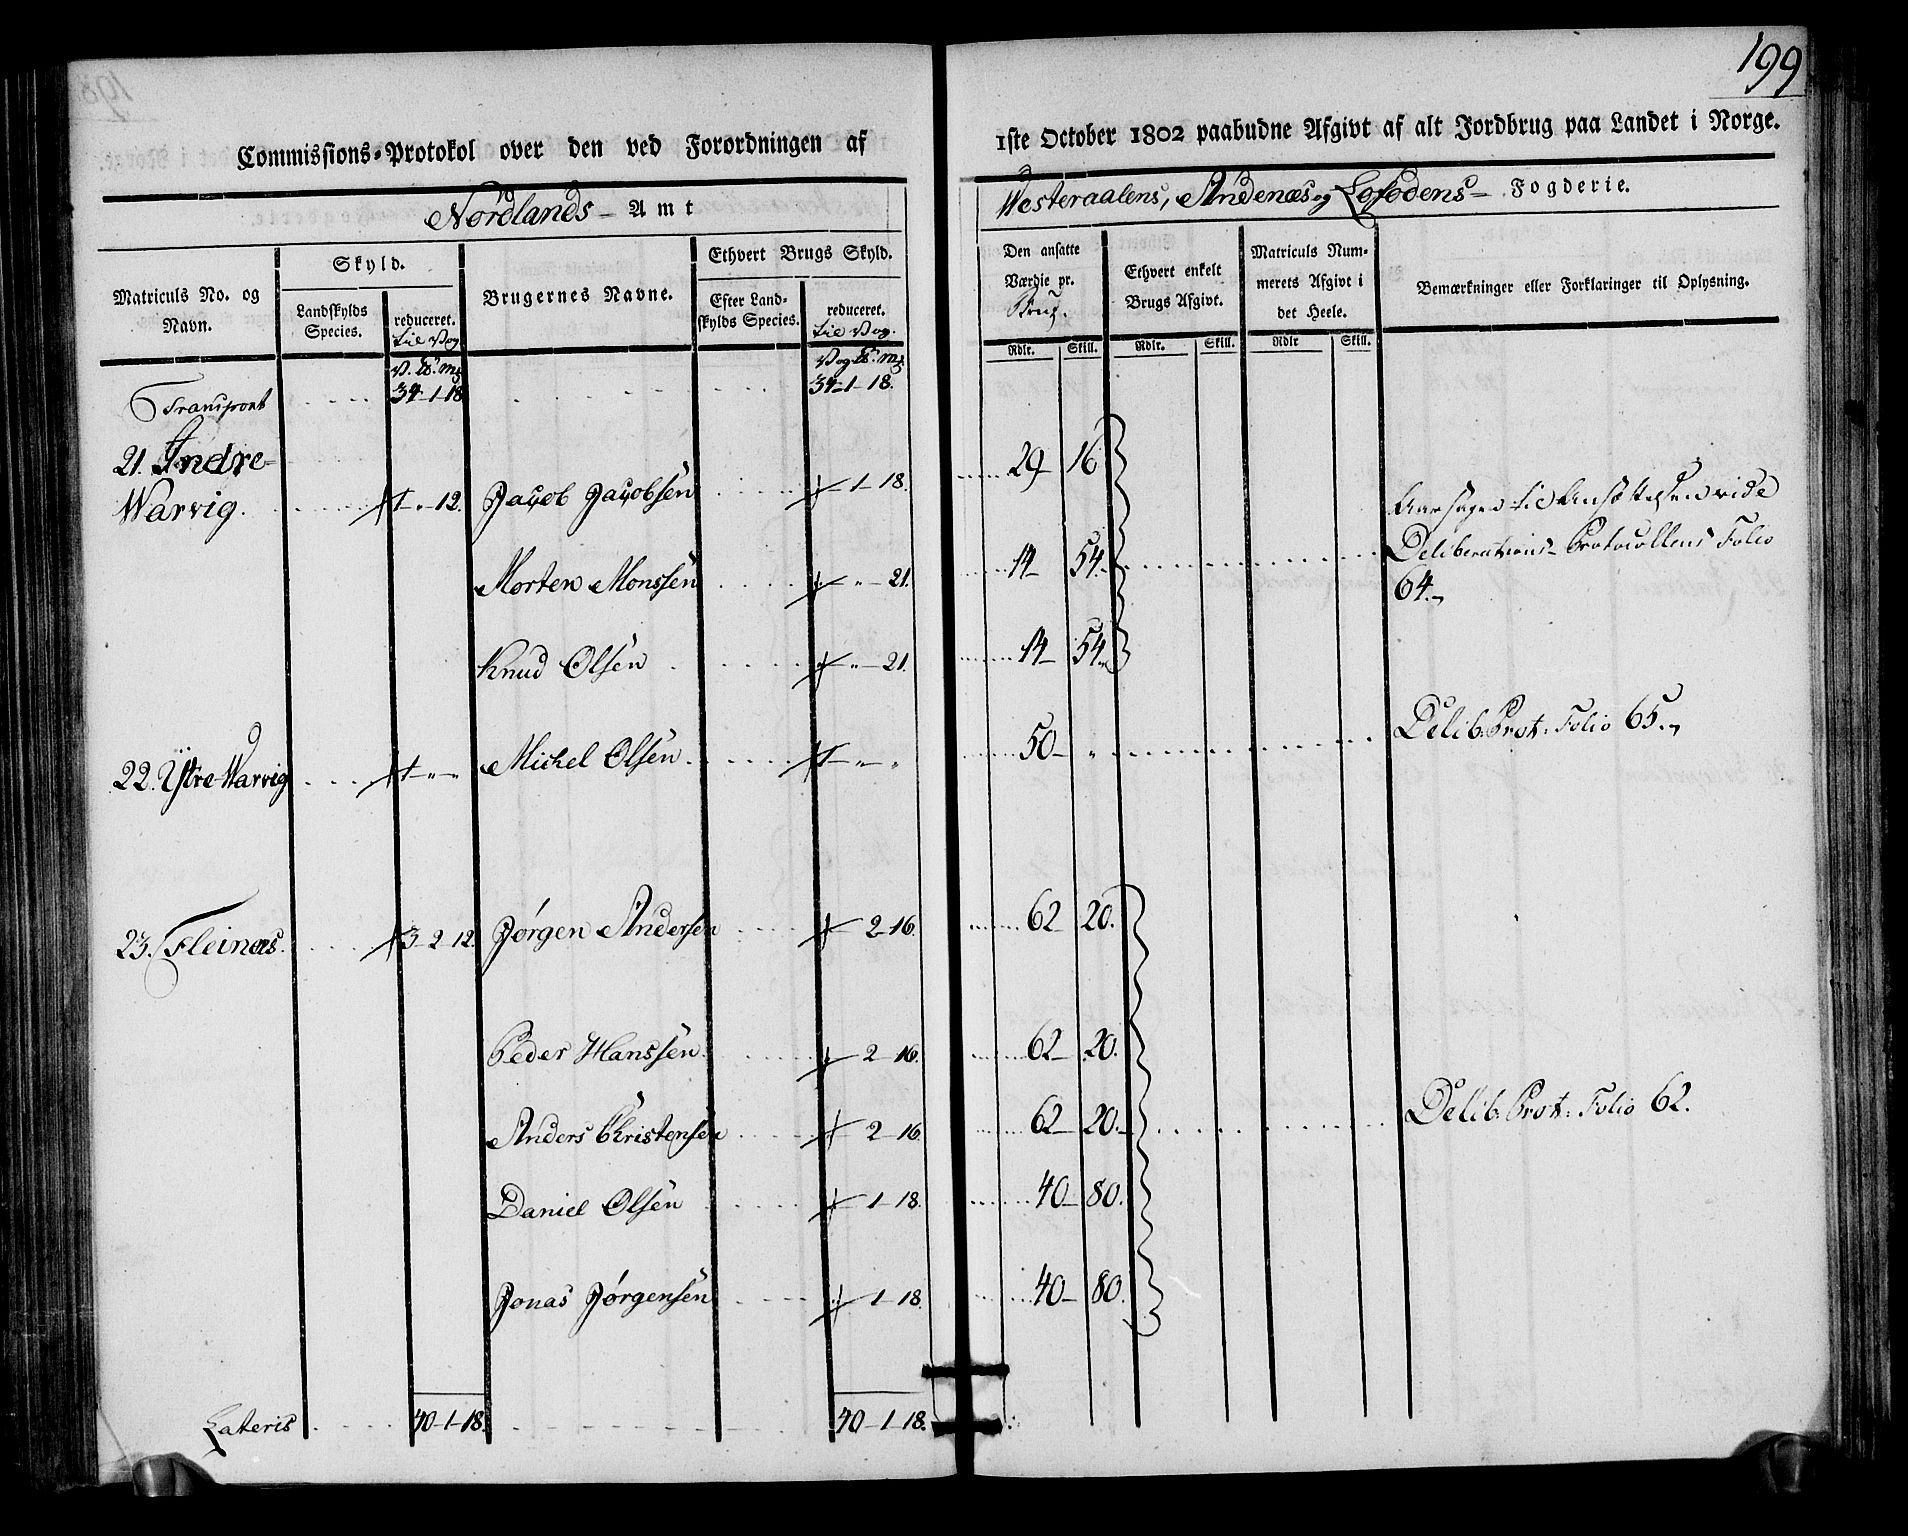 199
Commissions-Protokol over den ved Forordningen af
1ste October 1802 paabudne Afgivt af alt Jordbrug paa Landet i Norge.
Nordlands - Amt
Westeraalens, Andenæs og Lofodens - Fogderie.
Matriculs No. og Navn.
Skyld.
Landskylds Species.
reduceret. til Vog
Brugernes Navne.
Ethvert Brugs Skyld.
Efter Landskylds Species.
reduceret. til Vog.
Den ansatte Værdie pr. Brug.
Ethvert enkelt Brugs Afgivt.
Matriculs Nummerets Afgivt i det Heele.
Bemærkninger eller Forklaringer til Oplysning.
Rdlr. Skill. Rdlr. Skill. Rdlr Skill.
V. ℔. mk Vog ℔. mk
Transport 34-1-18 34-1-18.
21. Indre-
Warvig. 1-"-12. Jacob Jacobsen -1-18. 29 16
Aarsagen til Ansættelsen vide
Morten Monssen "-21. 14 54. Deliberations-Protocollens Folio
64.
Knud Olsen "-21. 14 54
22. Ystre Warvig 1-"-" Michel Olsen 1-"-" 50 " Delib: Prot: Folio 65.
23. Fleinæs. 3-2-12. Jørgen Andersen 2-16. 62 20.
Peder Hanssen 2-16. 62 20.
Anders Christensen 2-16. 62 20. Delib: Prot: Folio 62.
Daniel Olsen 1-18. 40 80.
Jonas Jørgensen 1-18. 40 80.
Lateris 40-1-18. 40-1-18.